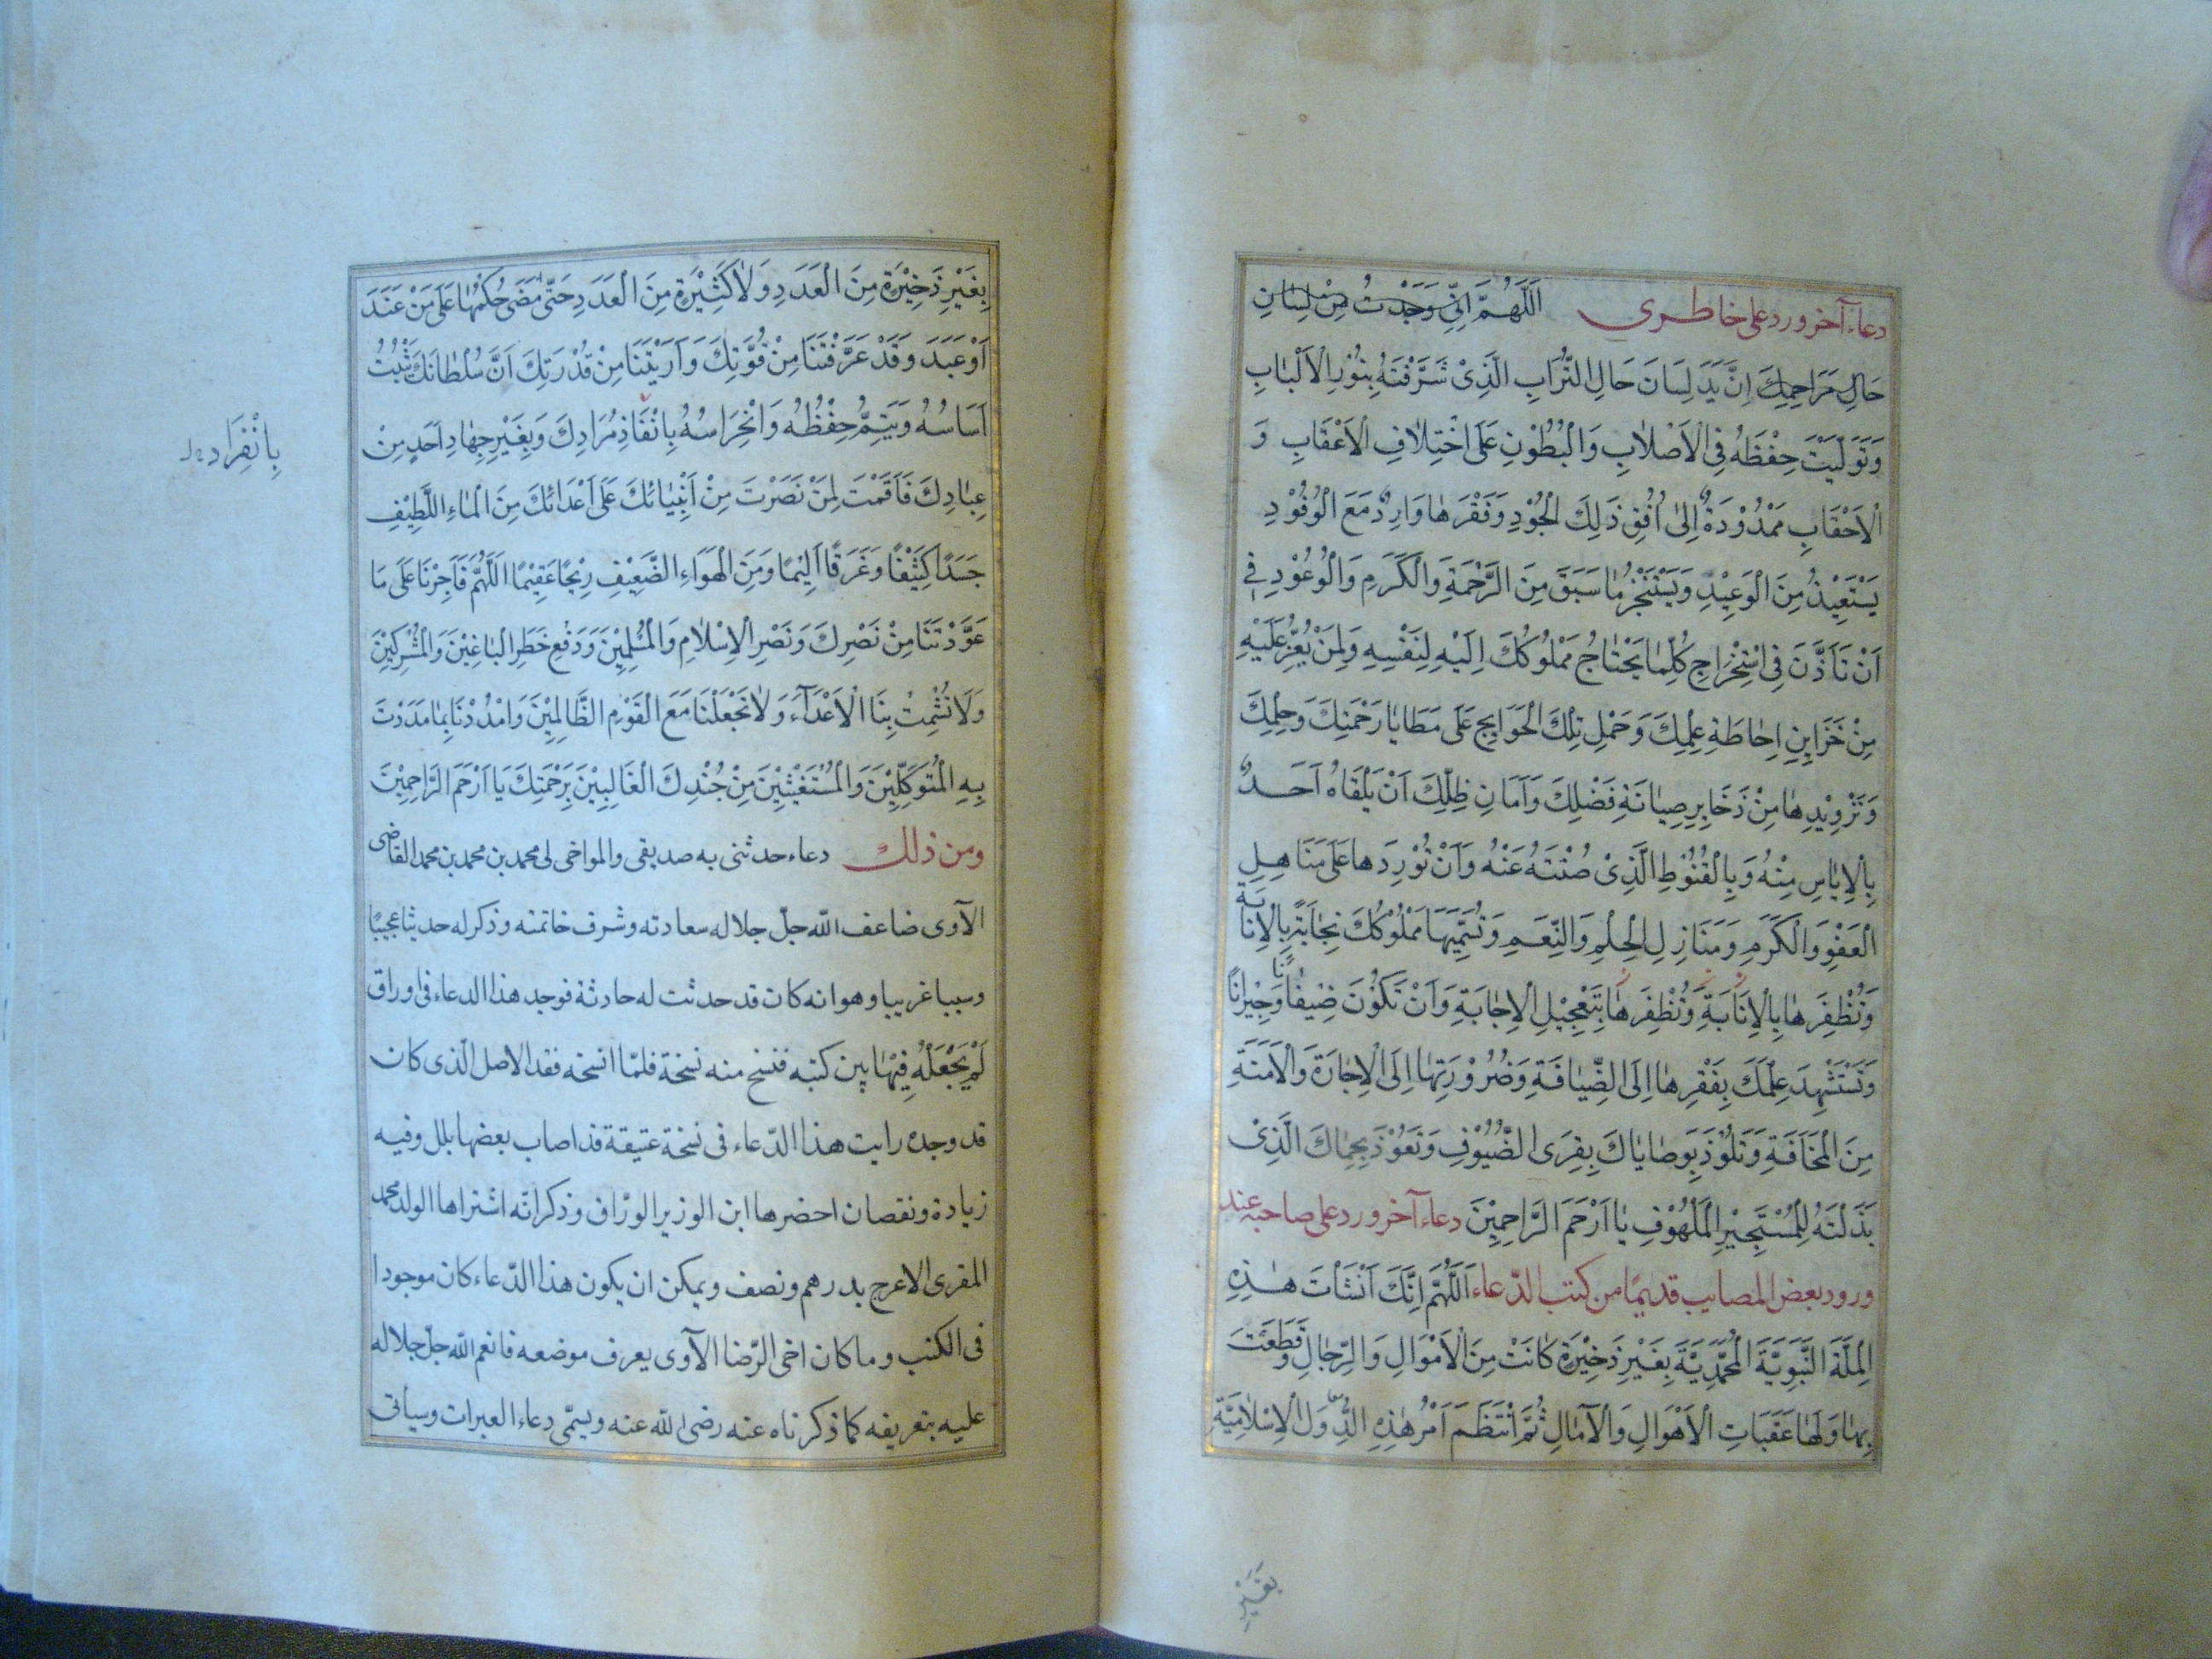 دعاء آخر ورد علی خاطری اَللّٰهُمَّ اِنّی وَجَدْتُ مِنْ لِسَانِ
حَالِ مَرَاحِمِكَ اِنَّ يَدَ لِسَانَ حَالِ التُّرَابِ الَّذِیْ شَرَّفْتَهُ بِنُوْرِ الْاَلْبَابِ
وَتَوَلَّيْتَ حِفْظَهُ فِی الْاَصْلَابِ وَالْبُطُوْنِ عَلَی اخْتِلَافِ الْاَعْقَابِ وَ
الْاَحْقَابِ مَمْدُوْدَةٌ اِلیٰ اُفُقِ ذَلِكَ الْجُوْدِ وَفَقْرَهَا وَارِدٌ مَعَ الْوُفُوْدِ
يَسْتَعِيْذُ مِنَ الْوَعِيْدِ وَيَسْتَنْجِزُ مَا سَبَقَ مِنَ الرَّحْمَةِ وَالْكَرَمِ وَالْوُعُوْدِ فِی
اَنْ تَأْذَنَ فِی اسْتِخْرَاجِ كُلِّمَا يَحْتَاجُ مَمْلُوْكُكَ اِلَيْهِ لِنَفْسِهِ وَلِمَنْ يُعِزُّ عَلَيْهِ
مِنْ خَزَايِنِ اِحَاطَةِ عِلْمِكَ وَحَمْلِ تِلْكَ الْحَوَايِجِ عَلَی مَطَايَا رَحْمَتِكَ وَحِلْمِكَ
وَتَزْوِيْدِهَا مِنْ ذَخَايِرِ صِيَانَةِ فَضْلِكَ وَاَمَانِ ظِلِّكَ اَنْ يَلْقَاهُ اَحَدٌ
بِالْاِيَاسِ مِنْهُ وَبِالْقُنُوْطِ الَّذِیْ صُنْتَهُ عَنْهُ وَاَنْ تُوْرِدَهَا عَلَی مَنَاهِلِ
الْعَفْوِ وَالْكَرَمِ وَمَنَازِلِ الْحِلْمِ وَالنِّعَمِ وَتُسَمِّيَهَا مَمْلُوْكُكَ نِجَابَةً بِالْاِنَابَةِ
وَتُظْفِرَهَا بِالْاِنَابَةِ وَتُظْفِرَهَا بِتَعْجِيْلِ الْاِجَابَةِ وَاَنْ تَكُوْنَ ضِيْفَانًا وَجِيْرَانًا
وَتَسْتَشْهِدَ عِلْمَكَ بِفَقْرِهَا اِلَی الضِّيَافَةِ وَضُرُوْرَتِهَا اِلَی الْاِجَارَةِ وَالْاَمَنَةِ
مِنَ الْمَخَافَةِ وَتَلُوْذَ بِوَصَايَاكَ بِقِرَی الضُّيُوْفِ وَتَعُوْذَ بِحِمَاكَ الَّذِیْ
بَذَلْتَهُ لِلْمُسْتَجِيْرِ الْمَلْهُوْفِ يَا اَرْحَمَ الرَّاحِمِيْنَ دعاء آخر ورد علی صاحبه عند
ورود بعض المصايب قديمًا من كتب الدّعاء اَللّٰهُمَّ اِنَّكَ اَنْشَأْتَ هٰذِهِ
الْمِلَّةَ النَّبَوِيَّةَ الْمُحَمَّدِيَّةَ بِغَيْرِ ذَخِيْرَةٍ كَانَتْ مِنَ الْاَمْوَالِ وَالرِّجَالِ وَقَطَعَتْ
بِهَا وَلَهَا عَقَبَاتِ الْاَهْوَالِ وَالْآمَالِ ثُمَّ انْتَظَمَ اَمْرُ هٰذِهِ الدُّوَلِ الْاِسْلَامِيَّةِ
بِغَيْرِ
بِغَيْرِ ذَخِيْرَةٍ مِنَ الْعَدَدِ وَلَا كَثِيْرَةٍ مِنَ الْعَدَدِ حَتّیٰ مَضَی حُكْمُهَا عَلَی مَنْ عَنَدَ
اَوْ عَبَدَ وَقَدْ عَرَّفْتَنَا مِنْ قُوَّتِكَ وَاَرَيْتَنَا مِنْ قُدْرَتِكَ اَنَّ سُلْطَانَكَ يَثْبُتُ
اَسَاسُهُ وَيَتِمُّ حِفْظُهُ وَانْحِرَاسُهُ بِاِنْفَاذِ مُرَادِكَ وَبِغَيْرِ جِهَادِ اَحَدٍ مِنْ
بِانْفِرَادِ
عِبَادِكَ فَاَقَمْتَ لِمَنْ نَصَرْتَ مِنْ اَنْبِيَائِكَ عَلَی اَعْدَائِكَ مِنَ الْمَاءِ اللَّطِيْفِ
جَسَدًا كَثِيْفًا وَغَرَقًا اَلِيْمًا وَمِنَ الْهَوَاءِ الضَّعِيْفِ رِيْحًا عَقِيْمًا اَللّٰهُمَّ فَاَجِرْنَا عَلَی مَا
عَوَّدْتَنَا مِنْ نَصْرِكَ وَنَصْرِ الْاِسْلَامِ وَالْمُسْلِمِيْنَ وَدَفْعِ خَطَرِ الْبَاغِيْنَ وَالْمُشْرِكِيْنَ
وَلَا تُشْمِتْ بِنَا الْاَعْدَآءَ وَلَا تَجْعَلْنَا مَعَ الْقَوْمِ الظَّالِمِيْنَ وَامْدُدْنَا بِمَا مَدَدْتَ
بِهِ الْمُتَوَكِّلِيْنَ وَالْمُسْتَغِيْثِيْنَ مِنْ جُنْدِكَ الْغَالِبِيْنَ بِرَحْمَتِكَ يَا اَرْحَمَ الرَّاحِمِيْنَ
ومن ذلك دعاء حدثنی به صديقی والمواخی لی محمد بن محمد بن محمد القاضی
الآوی ضاعف الله جلّ جلاله سعادته وشرف خاتمته وذكر له حديثا عجيبًا
وسببا غريبا وهو انه كان قد حدثت له حادثة فوجد هذا الدعاء فی اوراق
لَمْ يَجْعَلْهُ فِيْهَا بين كتبه فنسخ منه نسخة فلمّا انسخه فقد الاصل الّذی كان
قد وجده رايت هذا الدّعاء فی نسخة عتيقة قد اصاب بعضها بلل وفيه
زيادة ونقصان احضرها ابن الوزير الورّاق وذكر انّه اشتراها الولد محمد
المقری الاعرج بدرهم ونصف ويمكن ان يكون هذا الدّعاء كان موجودا
فی الكتب وما كان اخی الرّضا الآوی يعرف موضعه فانعم الله جلّ جلاله
عليه بتعريفه كما ذكرناه عنه رضی الله عنه ويسمّی دعاء العبرات وسيأتی